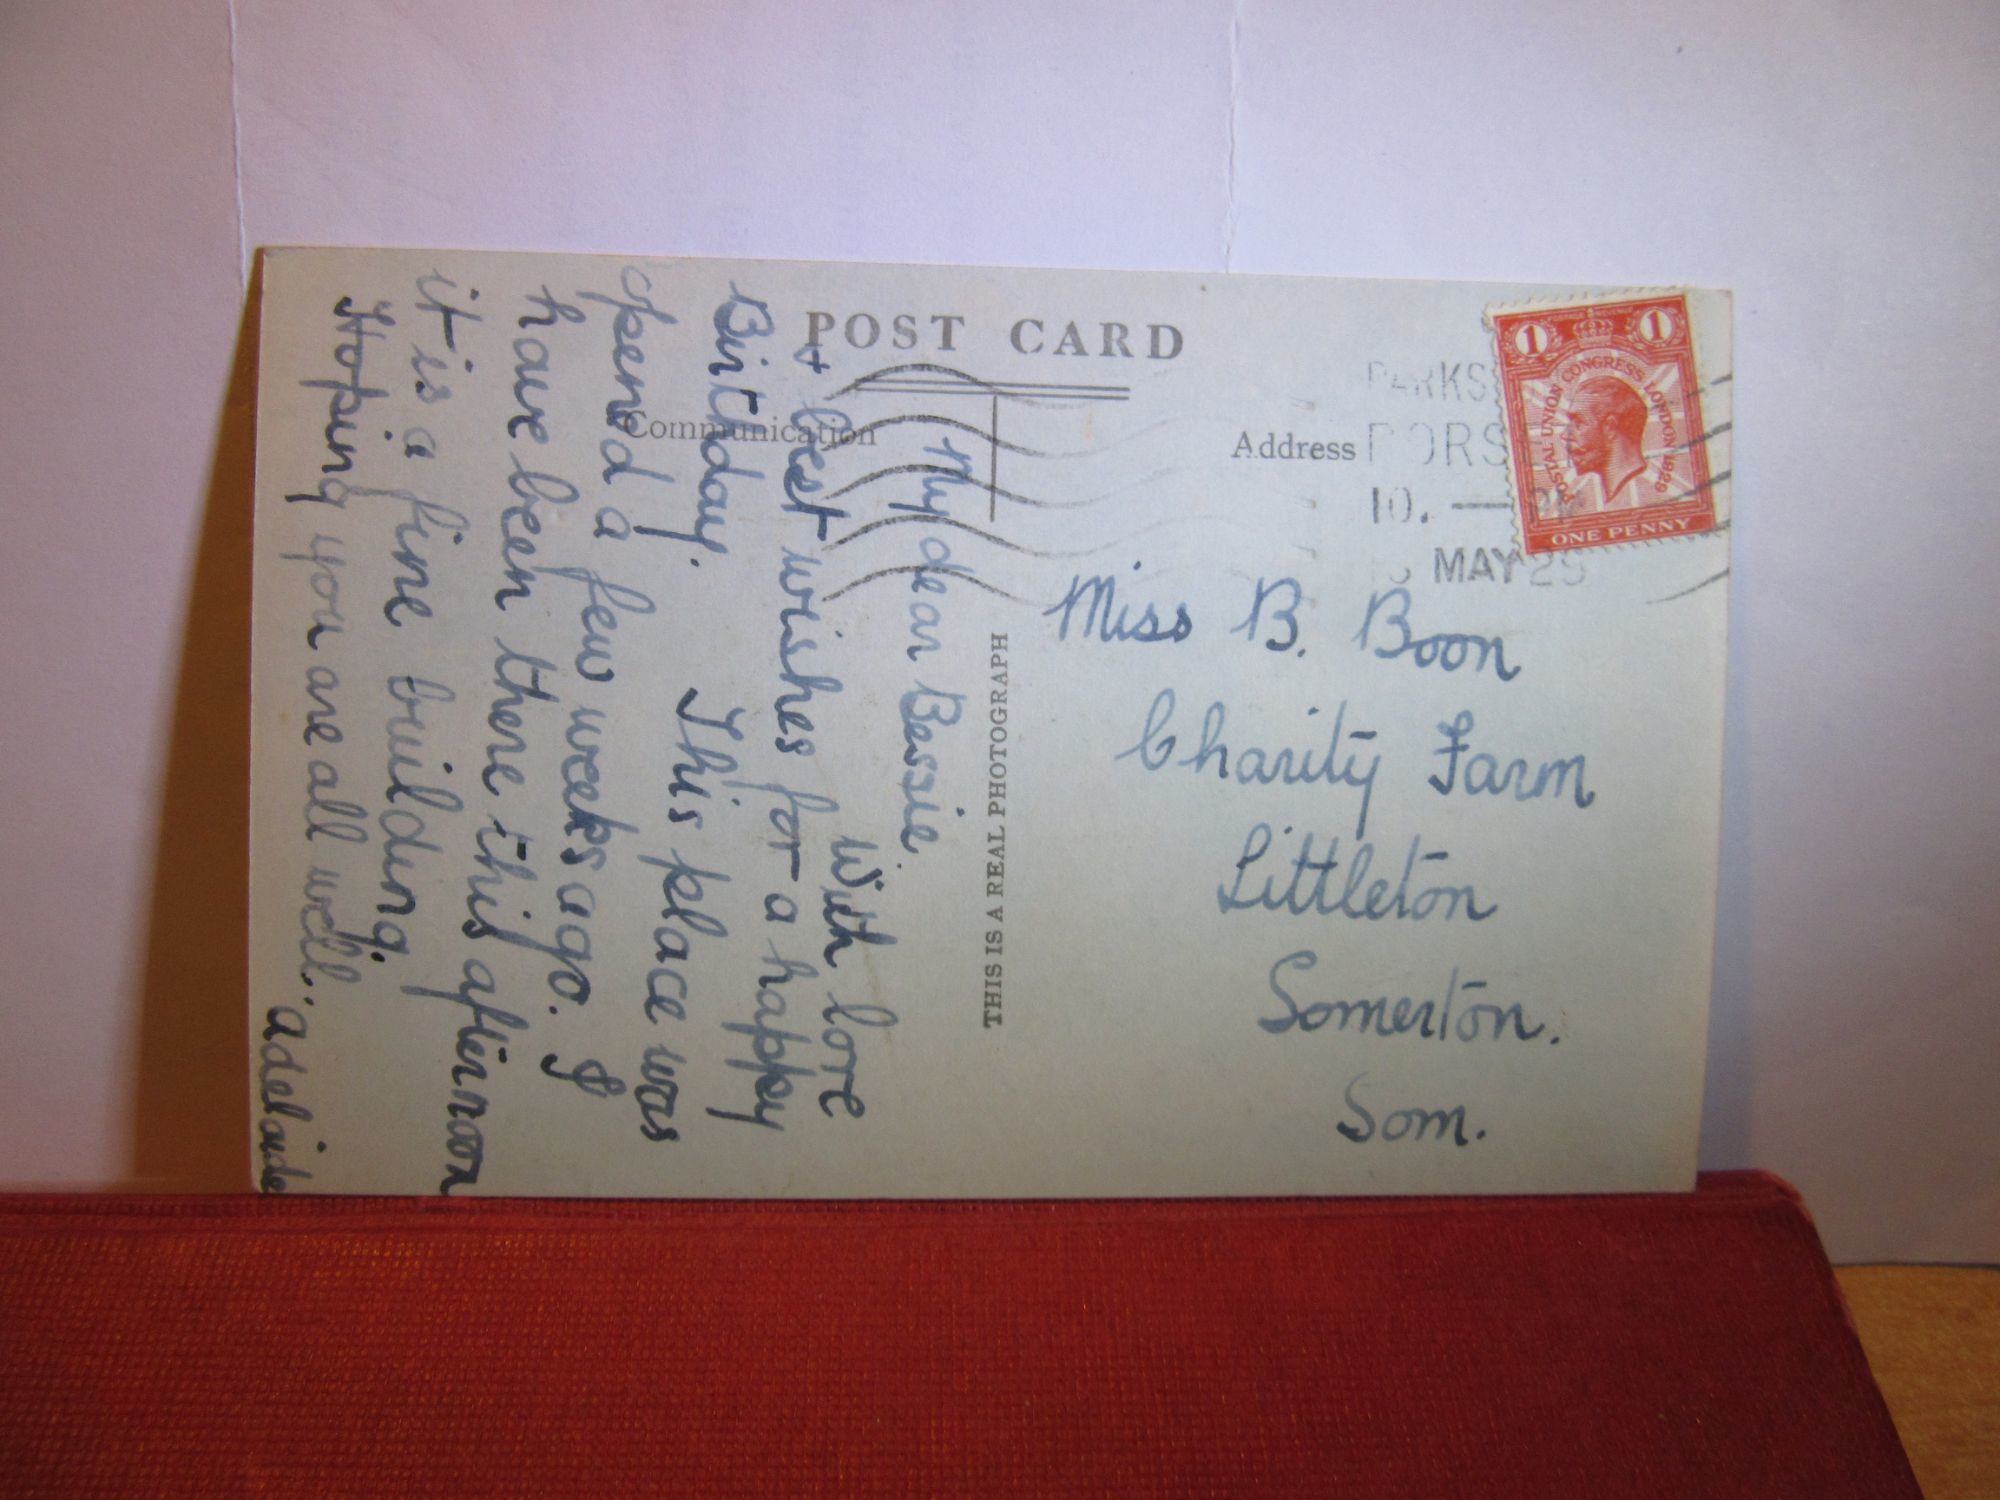 POST CARD
Communication
Address
THIS IS A REAL PHOTOGRAPH
PARKS
10. —
MAY 29
1 1
POSTAL UNION CONGRESS LONDON 1929
ONE PENNY
My dear Bessie.
With love
+ best wishes for a happy
Birthday. This place was
opened a few weeks ago. I
have been there this afternoon
it is a fine building.
Hoping you are all well. Adelaide
Miss B. Boon
Charity Farm
Littleton
Somerton.
Som.